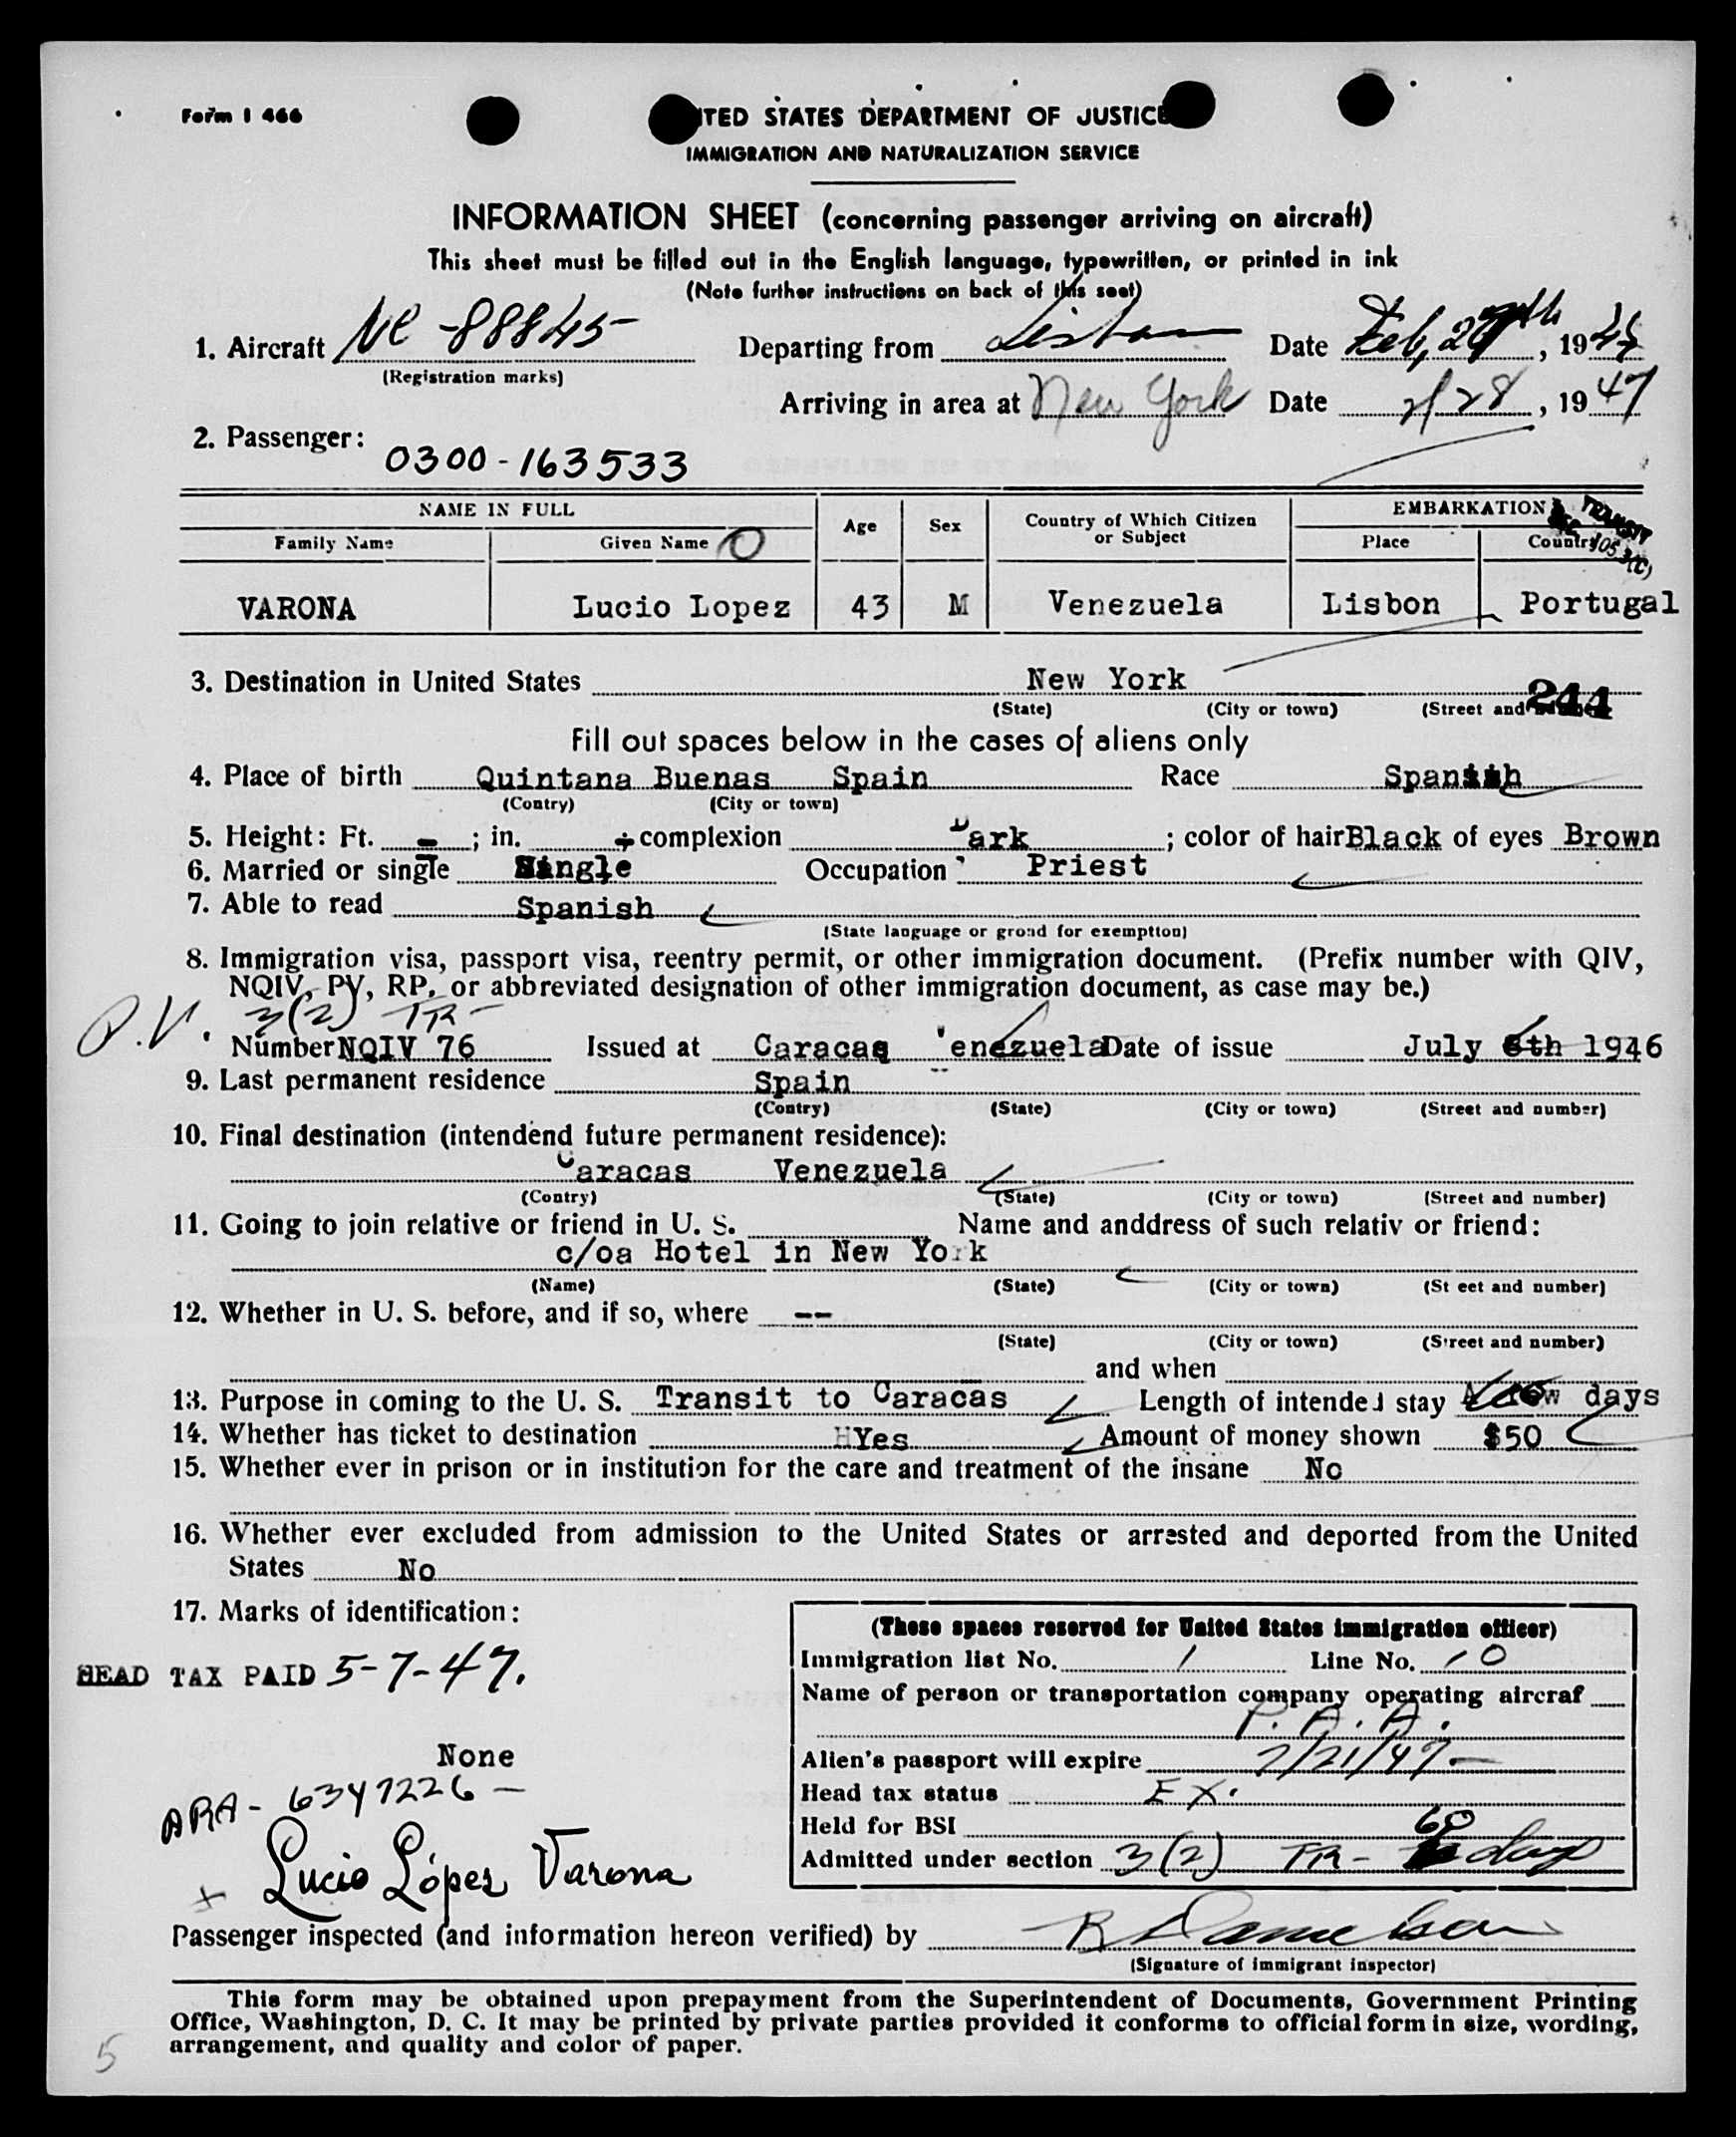 Form I 466
UNITED STATES DEPARTMENT OF JUSTICE
IMMIGRATION AND NATURALIZATION SERVICE
INFORMATION SHEET (concerning passenger arriving on aircraft)
This sheet must be filled out in the English language, typewritten, or printed in ink
(Note further instructions on back of this seet)
1. Aircraft NC-88845 Departing from Lisbon Date Feb, 27th, 1947
(Registration marks)
Arriving in area at New York Date 2/28, 1947
2. Passenger: 0300-163533
NAME IN FULL Age Sex Country of Which Citizen or Subject EMBARKATION TRANSIT
Family Name Given Name O Place Country 105.3(C)
VARONA Lucio Lopez 43 M Venezuela Lisbon Portugal
3. Destination in United States New York 244
(State) (City or town) (Street and
Fill out spaces below in the cases of aliens only
4. Place of birth Quintana Buenas Spain Race Spanish
(Contry) (City or town)
5. Height: Ft. - ; in. complexion Dark ; color of hair Black of eyes Brown
6. Married or single Single Occupation Priest
7. Able to read Spanish
(State language or groad for exemption)
8. Immigration visa, passport visa, reentry permit, or other immigration document. (Prefix number with QIV,
NQIV, PV, RP, or abbreviated designation of other immigration document, as case may be.)
P.V. 3(2) TR-
Number NQIV 76 Issued at Caracas Venezuela Date of issue July 6th 1946
9. Last permanent residence Spain
(Contry) (State) (City or town) (Street and number)
10. Final destination (intendend future permanent residence):
Caracas Venezuela
(Contry) (State) (City or town) (Street and number)
11. Going to join relative or friend in U. S. Name and anddress of such relativ or friend:
c/oa Hotel in New York
(Name) (State) (City or town) (St eet and number)
12. Whether in U. S. before, and if so, where --
(State) (City or town) (Street and number)
and when
13. Purpose in coming to the U. S. Transit to Caracas Length of intended stay A few days
14. Whether has ticket to destination Yes Amount of money shown $50
15. Whether ever in prison or in institution for the care and treatment of the insane No
16. Whether ever excluded from admission to the United States or arrested and deported from the United
States No
17. Marks of identification:
HEAD TAX PAID 5-7-47.
None
ARA- 6347226-
Lucio López Varona
(These spaces reserved for United States immigration officer)
Immigration list No. 1 Line No. 10
Name of person or transportation company operating aircraf
P. A. A.
Alien's passport will expire 7/21/47-
Head tax status EX.
Held for BSI
Admitted under section 3(2) TR- 60 days
Passenger inspected (and information hereon verified) by R Danielson
(Signature of immigrant inspector)
This form may be obtained upon prepayment from the Superintendent of Documents, Government Printing
Office, Washington, D. C. It may be printed by private parties provided it conforms to official form in size, wording,
arrangement, and quality and color of paper.
5